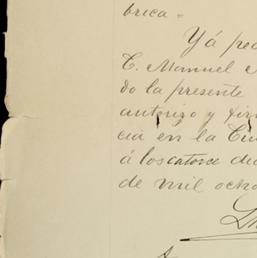 brica=
Yá ped
C. Manuel
do la presente
autorizo y fir
cia en la Ciu
á los catorce dia
de mil ocho